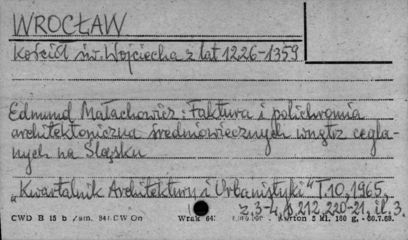 WROCŁAW
Kościół św. Wojciecha z lat 1226-1359
Edmund Małachowicz: Faktura i polichromia
architektoniczna średniowiecznych wnętrz cegla-
nych na Śląsku
„Kwartalnik Architektury i Urbanistyki" T.10, 1965,
z.3-4, s.212, 220-21, il.3.
CWD B 15 b /zam. CW On Wraz 64: Karton 5 kl. 160 g.